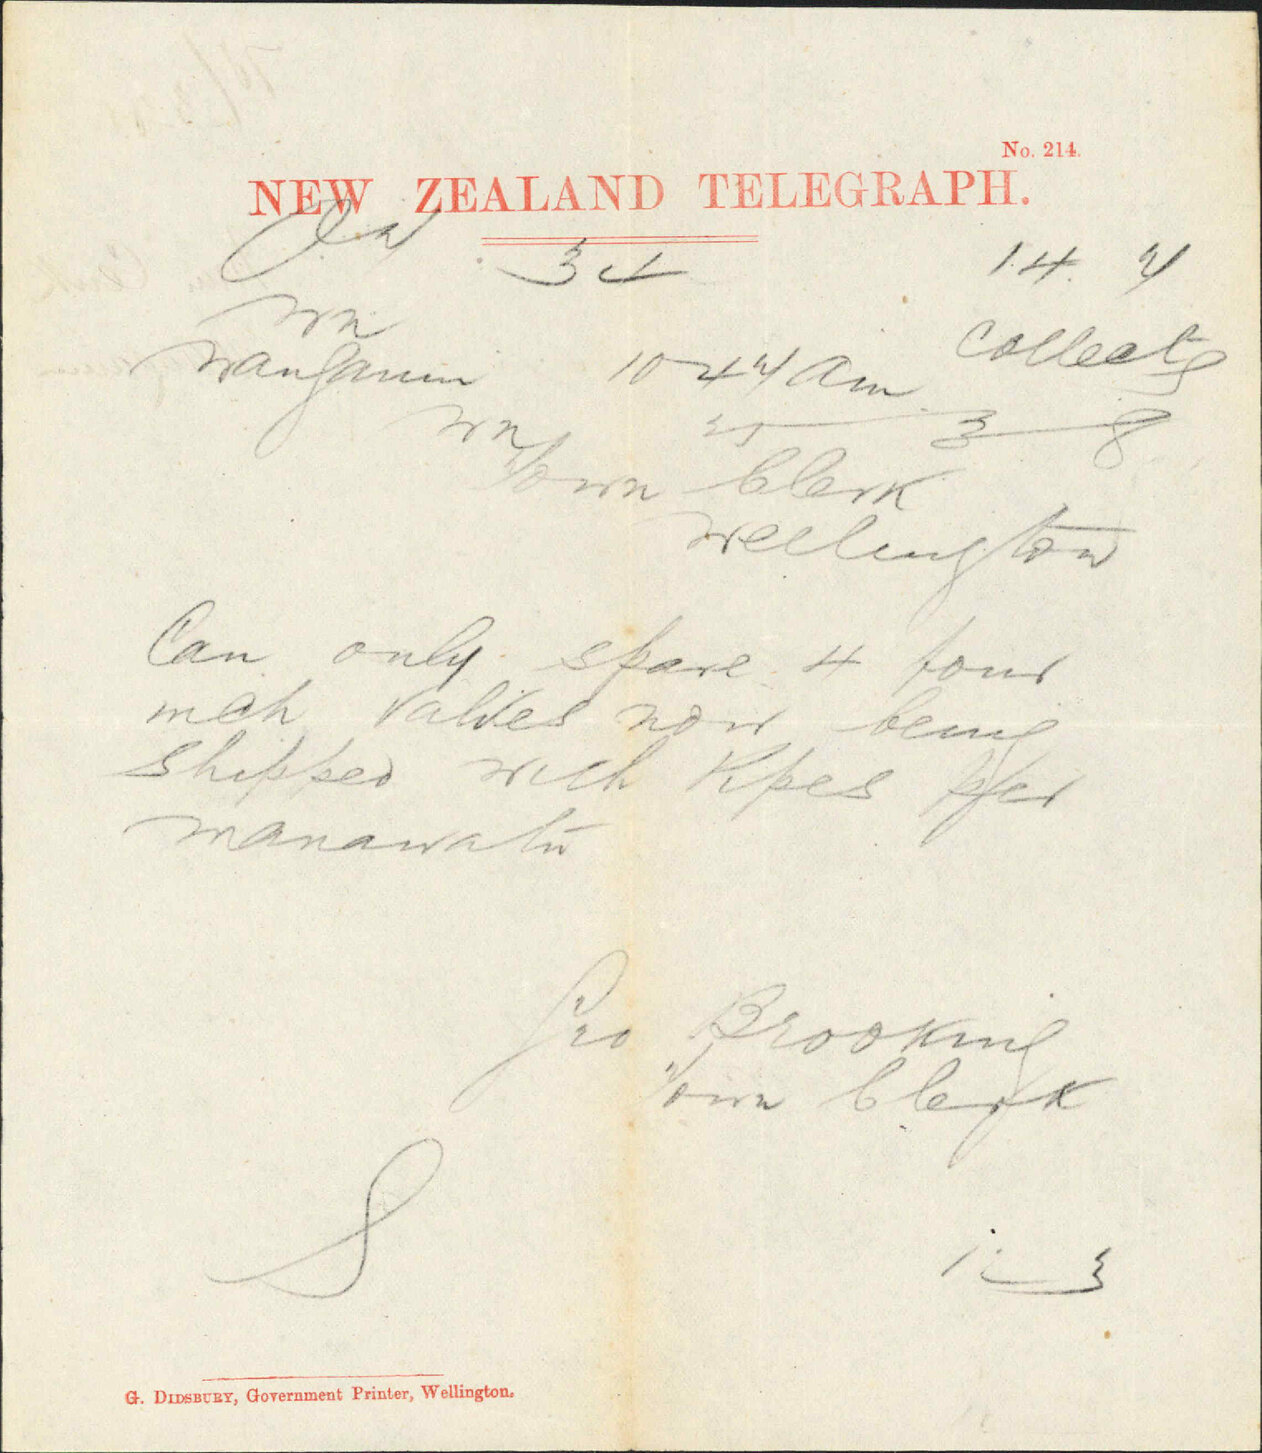 No. 214.
NEW ZEALAND TELEGRAPH.
14
Wn collect
Wanganui 10 44 am
Wn 3 8
Town Clerk
Wellington
Can only spare 4 four
inch valves now being
shipped with Pipes per
manawatu
Geo Brooking
Town Clerk
S
1 3
G. DIDSBURY, Government Printer, Wellington.